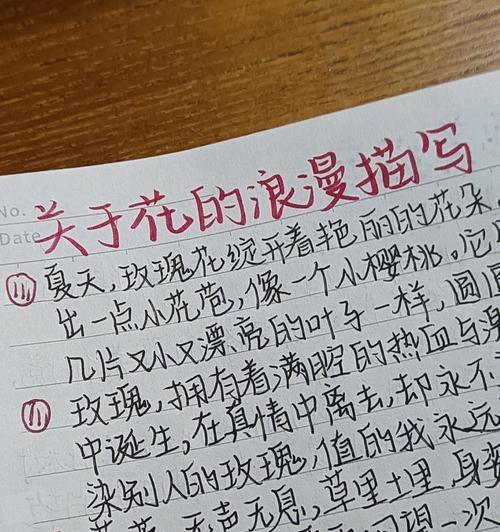 No.
Date
关于花的浪漫描写
(1) 夏天,玫瑰花绽开着艳丽的花朵,
出一点小花苞,像一个小樱桃。它
几片又小又漂亮的叶子一样,圆
(1) 玫瑰,拥有着满腔的热血与
中诞生,在真情中离去,却永不
染别人的玫瑰,值的我永远
无声无息,草里土里,身